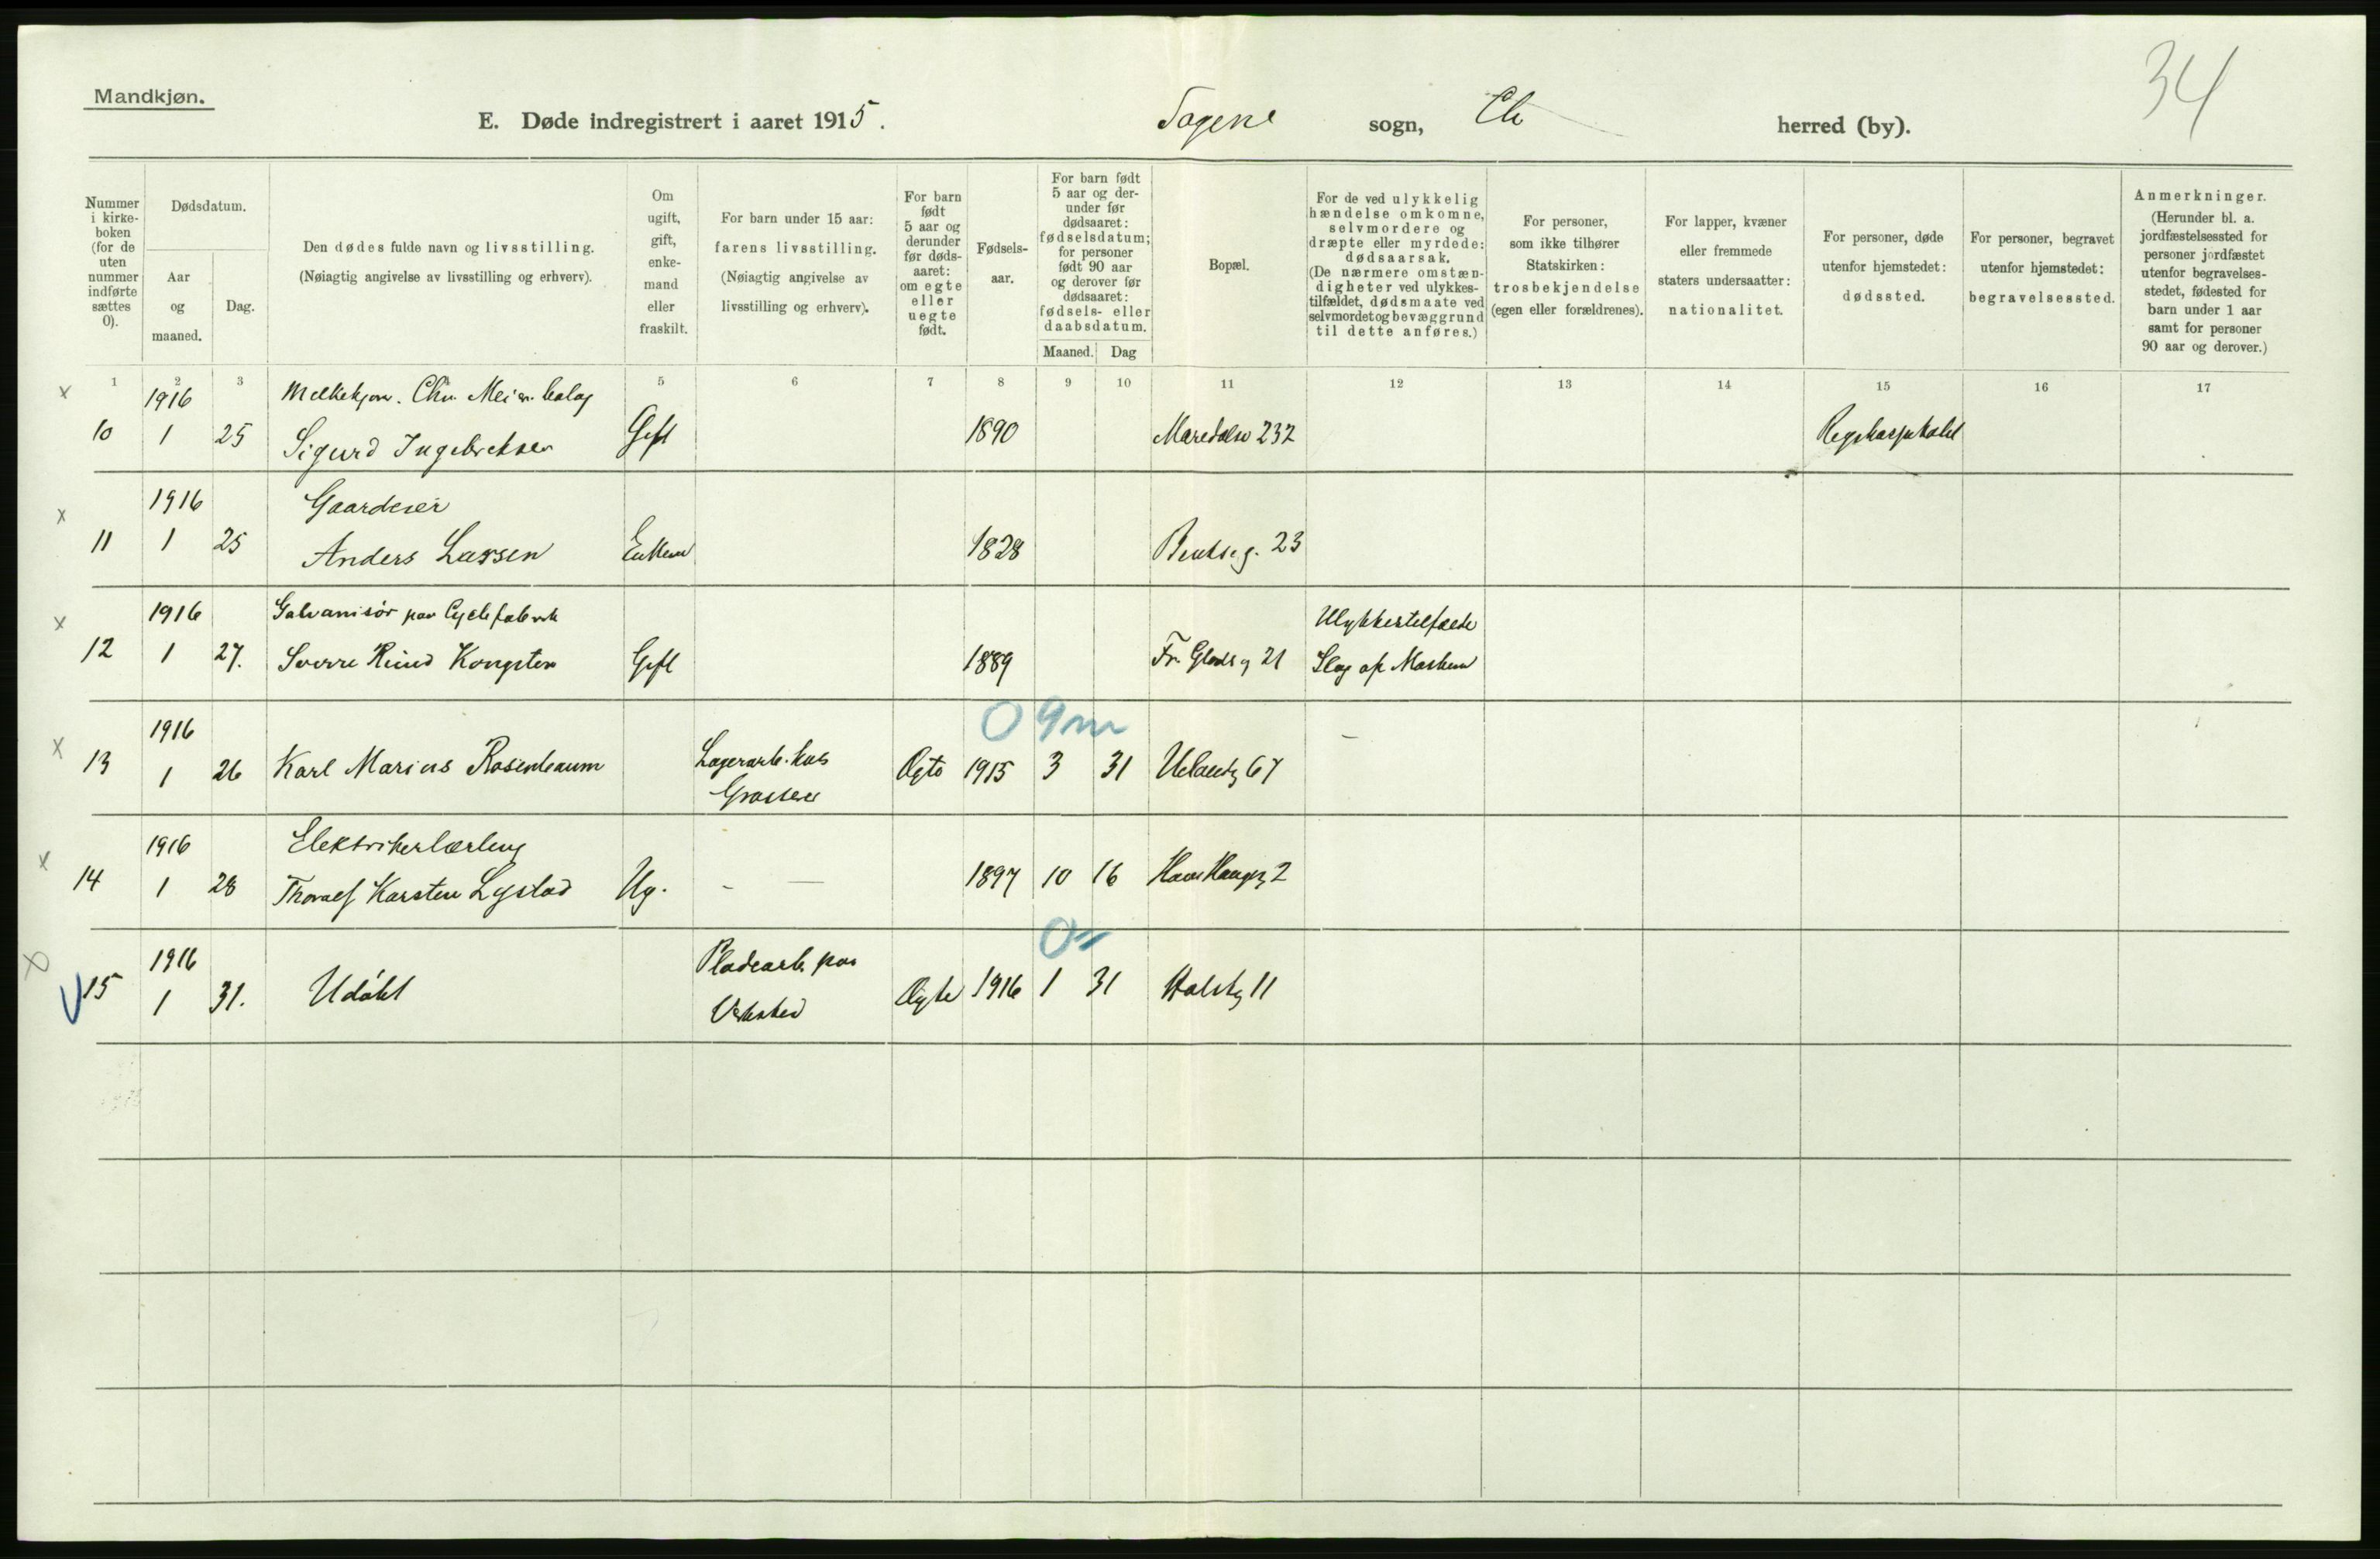 34
Mandkjøn.
E. Døde indregistrert i aaret 1915. Sagene sogn, Ch herred (by).
Nummer i kirke-boken (for de uten nummer indførte sættes 0).
Dødsdatum.
Aar og maaned.
Dag.
Den dødes fulde navn og livsstilling.
(Nøiagtig angivelse av livsstilling og erhverv).
Om ugift, gift, enke-mand eller fraskilt.
For barn under 15 aar:
farens livsstilling.
(Nøiagtig angivelse av livsstilling og erhverv).
For barn født 5 aar og derunder før døds-aaret: om egte eller uegte født.
Fødsels-aar.
For barn født 5 aar og der-under før dødsaaret: fødselsdatum; for personer født 90 aar og derover før dødsaaret: fødsels- eller daabsdatum.
Maaned. Dag
Bopæl.
For de ved ulykkelig hændelse omkomne, selvmordere og dræpte eller myrdede: dødsaarsak. (De nærmere omstæn-digheter ved ulykkes-tilfældet, dødsmaate ved selvmordet og bevæggrund til dette anføres.)
For personer, som ikke tilhører Statskirken: trosbekjendelse (egen eller forældrenes).
For lapper, kvæner eller fremmede staters undersaatter: nationalitet.
For personer, døde utenfor hjemstedet: dødssted.
For personer, begravet utenfor hjemstedet: begravelsessted.
Anmerkninger.
(Herunder bl. a. jordfæstelsessted for personer jordfæstet utenfor begravelses-stedet, fødested for barn under 1 aar samt for personer 90 aar og derover.)
1 2 3 5 6 7 8 9 10 11 12 13 14 15 16 17
x 1916 Melkekjør. Chr. Meieribolag
10 1 25 Sigurd Ingebretsen Gift 1890 Maridalsv 232 Rigshospitalet
x 1916 Gaardeier
11 1 25 Anders Larsen Enkem 1828 Bentseg. 23
x 1916 Galvanisør paa Cyclefabrik Ulykkestilfælde
12 1 27. Sverre Rund Kongsten Gift 1889 Fr. Glads g 21 Slag af Maskin
0 9m
x 1916 Lagerarb. hos
13 1 26 Karl Marius Rosenbaum Grosserer Egte 1915 3 31 Uelandsg 67 –
x 1916 Elektrikerlærling
14 1 28 Thoralf Karsten Lystad Ug. – — 1897 10 16 Hans Haugesg 2
0
x 1916 Pladearb. paa
V 15 1 31. Udøbt Verksted Egte 1916 1 31 Holstg 11